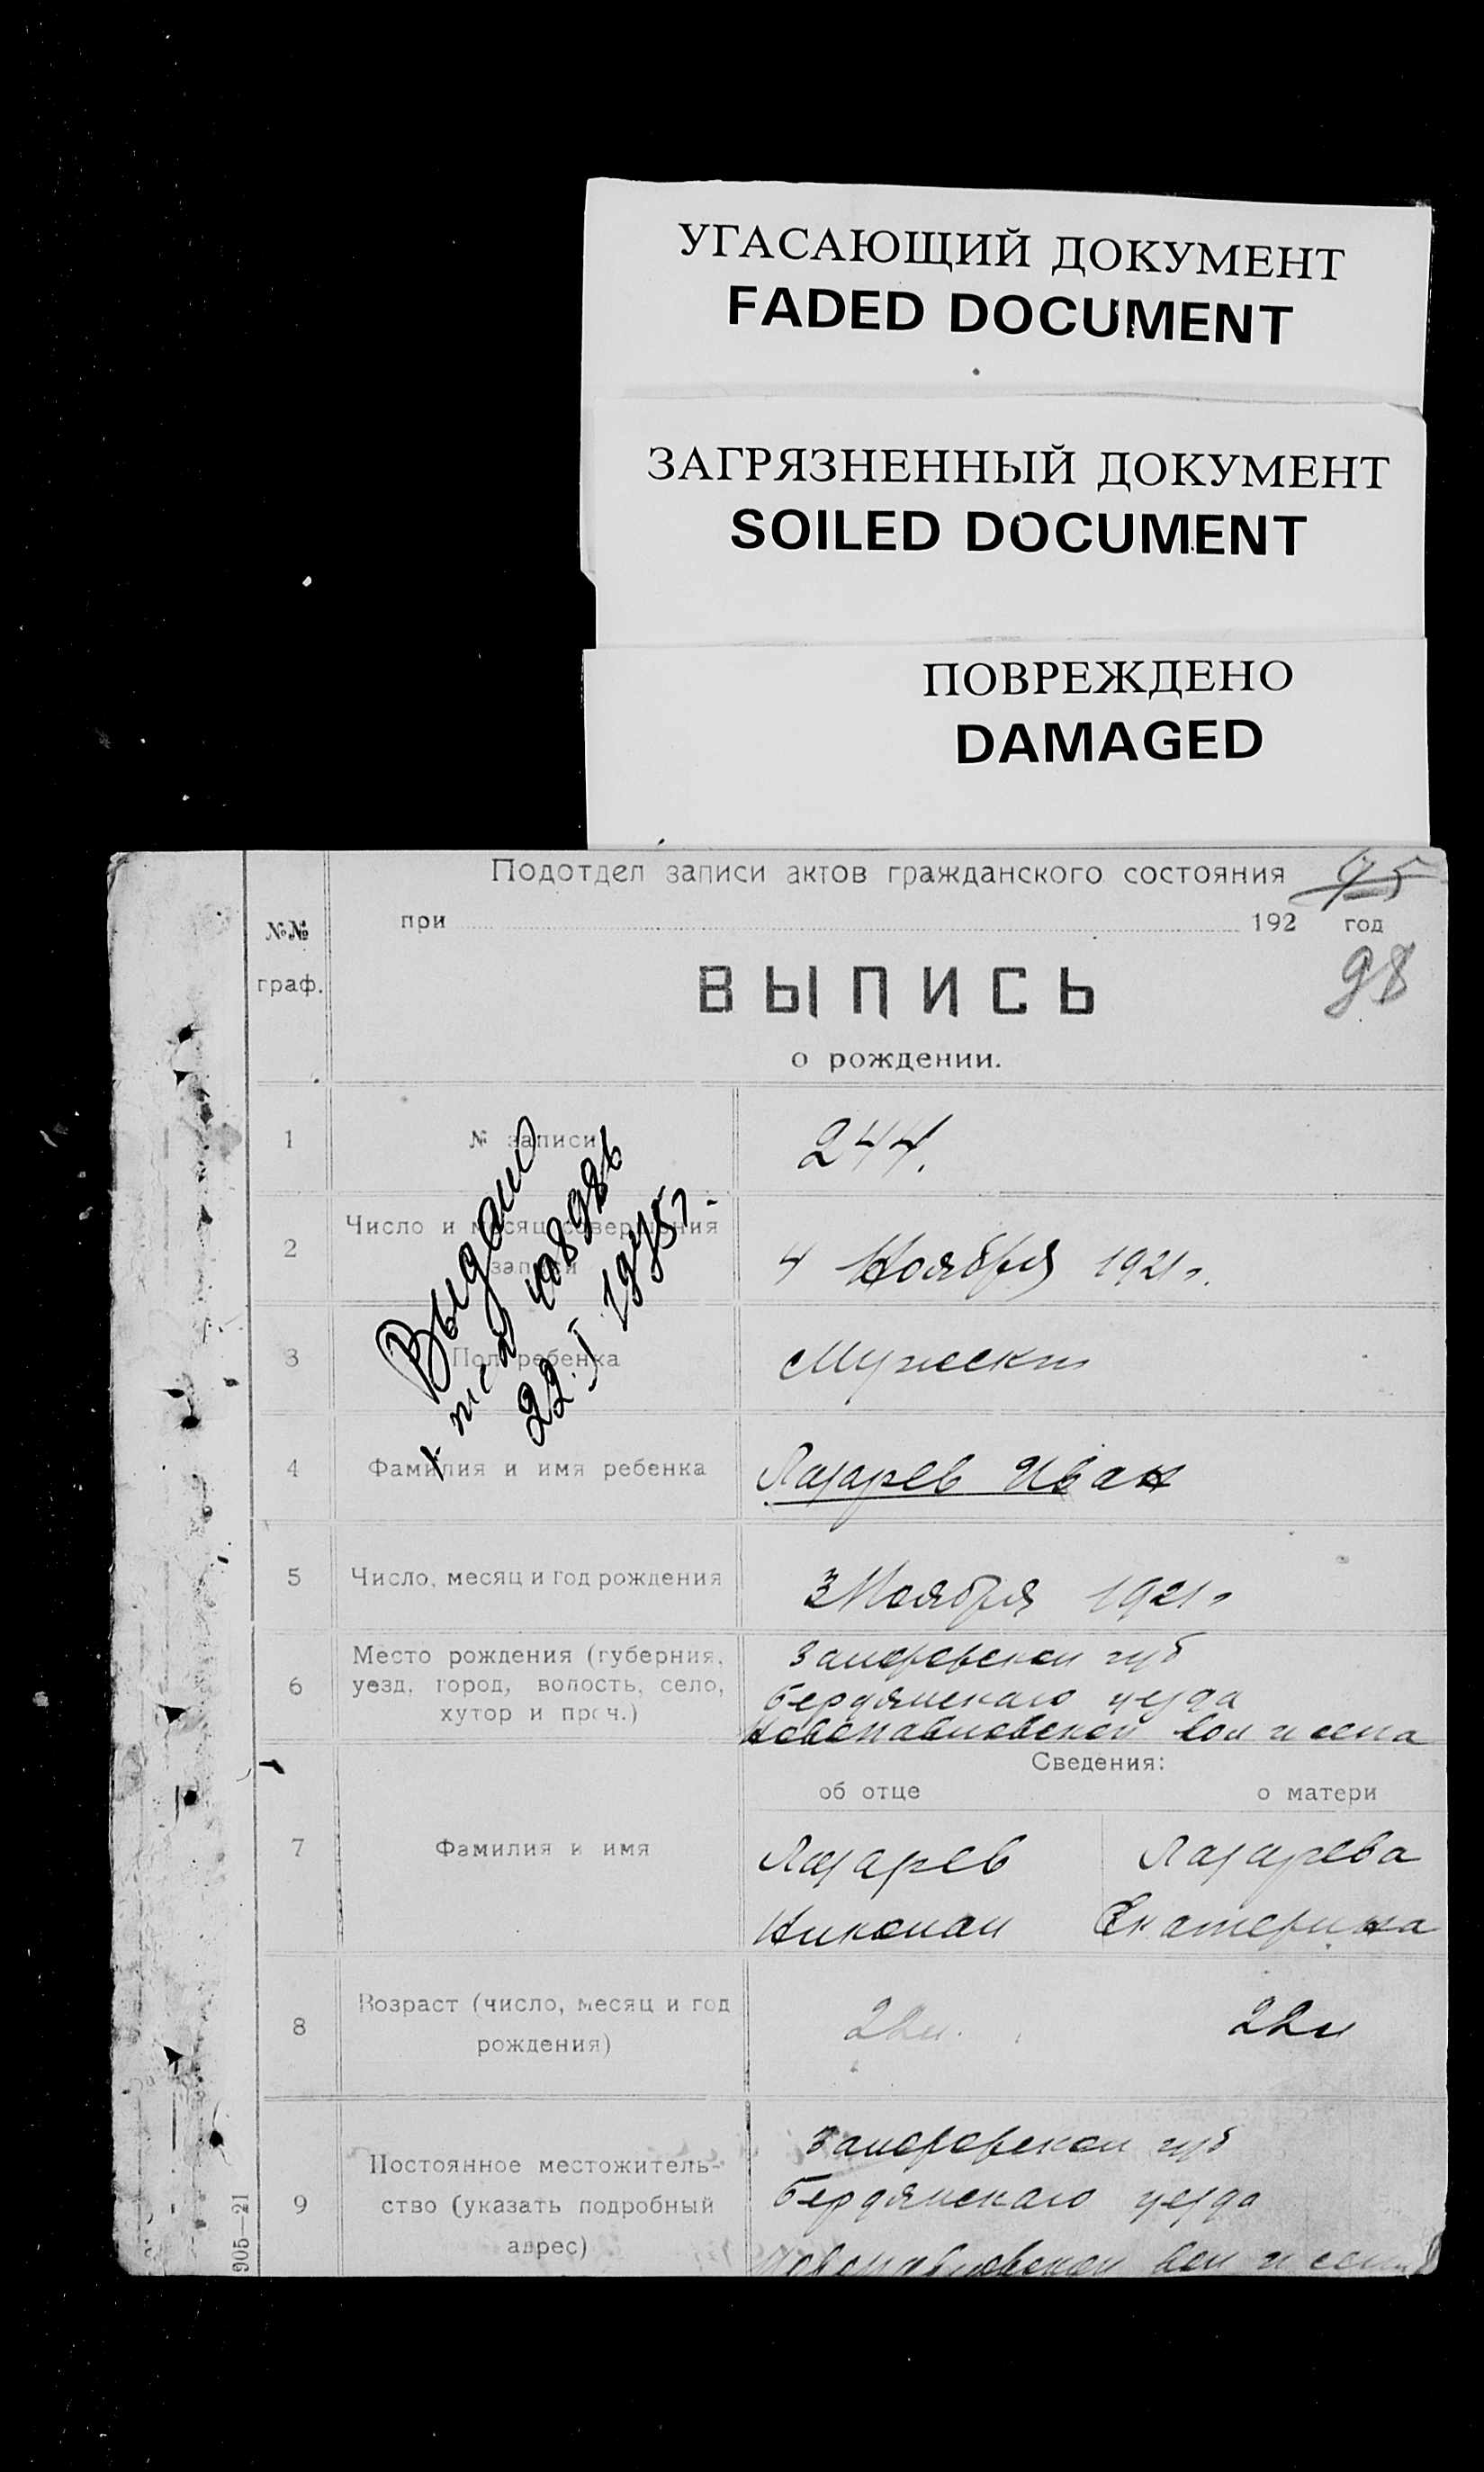 УГАСАЮЩИЙ ДОКУМЕНТ
FADED DOCUMENT
ЗАГРЯЗНЕННЫЙ ДОКУМЕНТ
SOILED DOCUMENT
ПОВРЕЖДЕНО
DAMAGED
Подотдел записи актов гражданского состояния 95
при 192 год
98
№№
граф.
ВЫПИСЬ
о рождении.
1 № записи 244.
2 Число и месяц совершения
записи 4 Ноября 1921 г.
Выдано
22.I 1975 г.
3 Пол ребенка Мужеский
4 Фамилия и имя ребенка Лазарев Иван
5 Число, месяц и год рождения 3 Ноября 1921 г
6 Место рождения (губерния,
уезд, город, волость, село,
хутор и проч.)
Запорожской губ
Бердянскаго уезда
Новопавловской вол и села
Сведения:
об отце о матери
7 Фамилия и имя
Лазарев Лазарева
Николай Екатерина
8 Возраст (число, месяц и год
рождения)
22 л. 22 л
9 Постоянное местожитель-
ство (указать подробный
адрес)
Запорожской губ
Бердянскаго уезда
Новопавловской вол и села
905—21